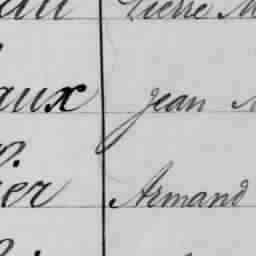 Pierre M
aux Jean
ier Armand